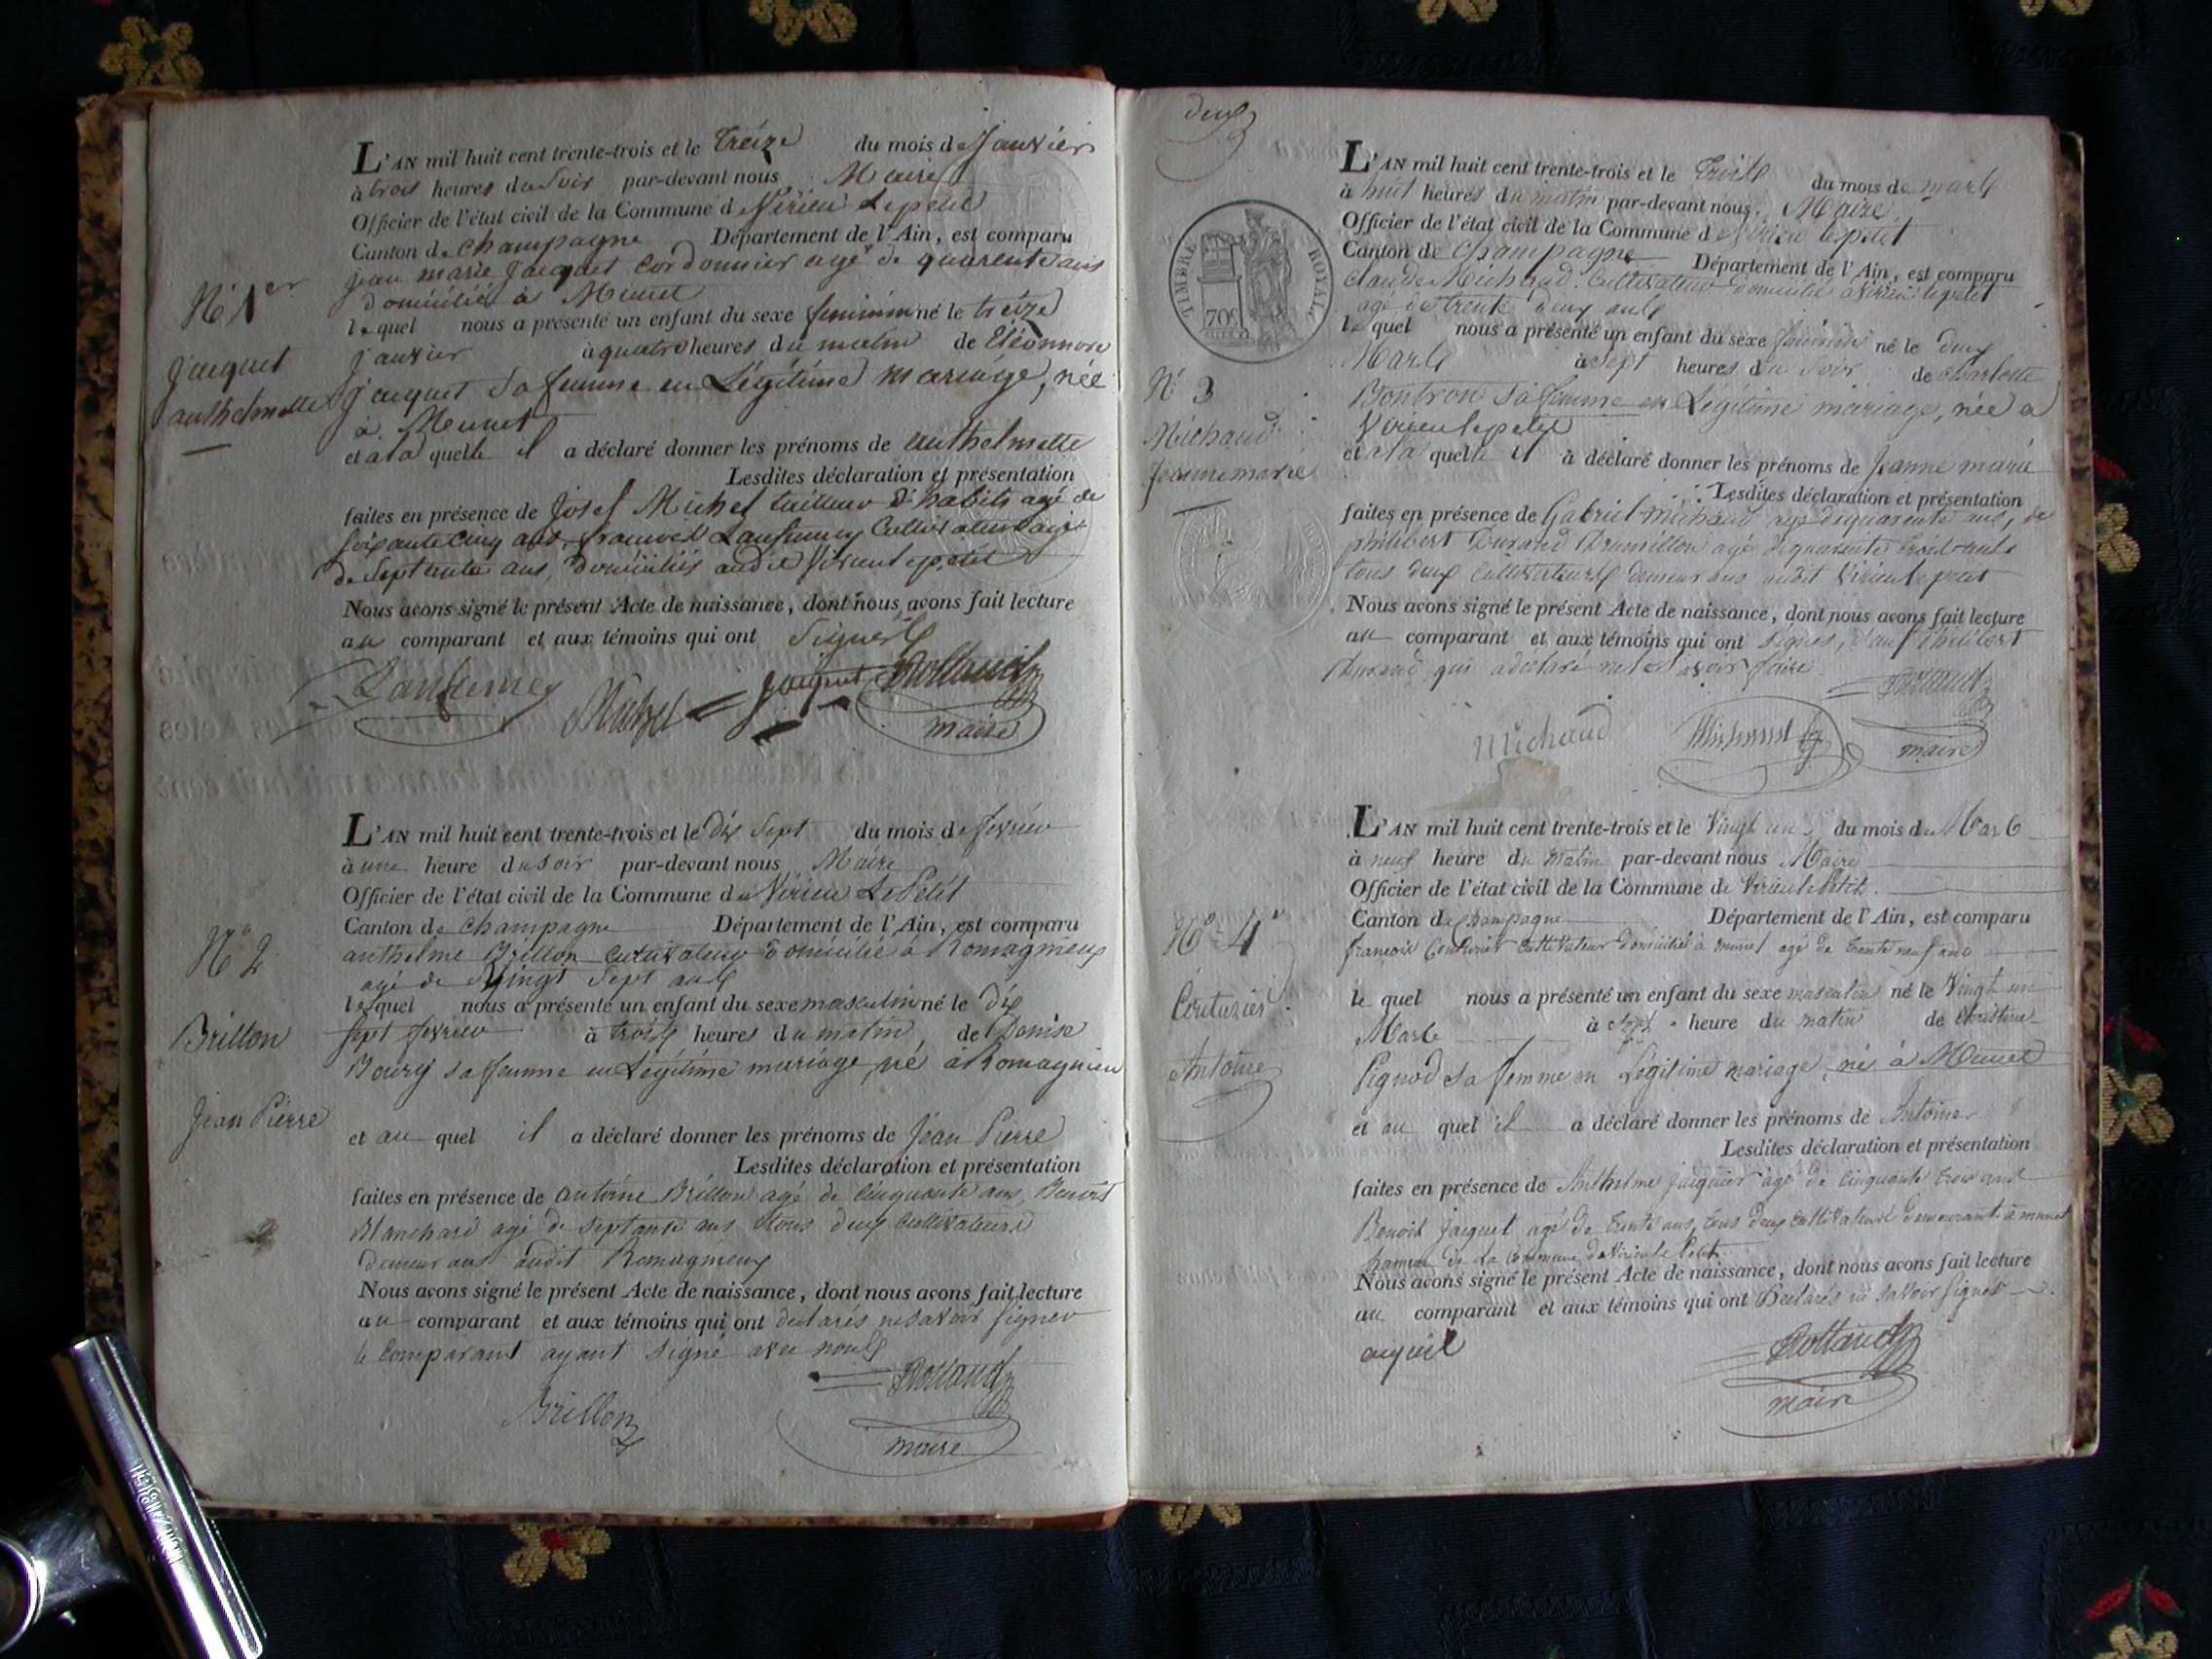 L'AN mil huit cent trente-trois et le treize du mois de Janvier
à trois heures du soir par-devant nous Maire
Officier de l'état civil de la Commune de Virieu Le petit
Canton de Champagne Département de l'Ain, est comparu
jean marie jacquet cordonnier agé de quarente ans
domicilié à Munet
N° 1er
lequel nous a présenté un enfant du sexe feminin né le treize
janvier à quatre heures du matin de Eléonnore
jacquet
jacquet sa femme en Légitime mariage, née
anthelmette
à Munet
et a la quelle il a déclaré donner les prénoms de anthelmette
Lesdites déclaration et présentation
faites en présence de Josef Michel tailleur d'habits agé de
soixante cinq ans, françois Lanfumey Cultivateur agé
de septante ans, domiciliés audit Virieu le petit
Nous avons signé le présent Acte de naissance, dont nous avons fait lecture
au comparant et aux témoins qui ont signés
Michel jacquet Rolland
maire
L'AN mil huit cent trente-trois et le dix sept du mois de fevrier
à une heure du soir par-devant nous Maire
Officier de l'état civil de la Commune de Virieu Le Petit
Canton de Champagne Département de l'Ain, est comparu
N° 2
anthelme Brillon cultivateur domicilié à Romagnieux
agé de Vingt sept ans
lequel nous a présenté un enfant du sexe masculin né le dix
Brillon
sept fevrier à trois heures du matin de Denise
sa femme en Légitime mariage né à Romagnieu
Jean Pierre
et au quel il a déclaré donner les prénoms de Jean Pierre
Lesdites déclaration et présentation
faites en présence de antoine Brillon agé de cinquante ans, Benoit
Blanchard agé de septante ans tous deux cultivateurs
demeurans audit Romagnieux
Nous avons signé le présent Acte de naissance, dont nous avons fait lecture
au comparant et aux témoins qui ont declarés ne savoir signer
le comparant ayant signé avec nous
Rolland
Brillon
maire
deux
L'AN mil huit cent trente-trois et le trois du mois de mars
à huit heures du matin par-devant nous Maire
Officier de l'état civil de la Commune de Virieu le petit
Canton de Champagne Département de l'Ain, est comparu
Claude Michaud Cultivateur domicilié à Virieu le petit
agé de trente deux ans
TIMBRE ROYAL
70c
lequel nous a présenté un enfant du sexe feminin né le deux
Mars à sept heures du soir de Charlotte
N° 3
Bontron sa femme en Légitime mariage, née a
Michaud
Virieu le petit
et a la quelle il a déclaré donner les prénoms de Jeanne marie
Jeanne marie
Lesdites déclaration et présentation
faites en présence de Gabriel Michaud agé de quarante ans, de
philibert Durand agé de quarante trois ans
tous deux cultivateurs demeurans audit Virieu le petit
Nous avons signé le présent Acte de naissance, dont nous avons fait lecture
au comparant et aux témoins qui ont signés, sauf Philibert
Durand qui a declaré ne le savoir faire
Rolland
michaud Michaud
maire
L'AN mil huit cent trente-trois et le Vingt un du mois de Mars
à neuf heure du matin par-devant nous Maire
Officier de l'état civil de la Commune de Virieu le Petit
Canton de Champagne Département de l'Ain, est comparu
N° 4
françois Couturier Cultivateur domicilié à munet agé de trente neuf ans
lequel nous a présenté un enfant du sexe masculin né le Vingt un
Couturier
Mars à sept heure du matin de Christine
Antoine
Pignod sa femme en Légitime mariage, né à Munet
et au quel il a déclaré donner les prénoms de Antoine
Lesdites déclaration et présentation
faites en présence de Anthelme Juiquier agé de cinquante trois ans
Benoit Jacquet agé de trente ans, tous deux cultivateurs demeurants à munet
hameau de la Commune de Virieu le Petit
Nous avons signé le présent Acte de naissance, dont nous avons fait lecture
au comparant et aux témoins qui ont Declarés ne savoir signer
Rolland
maire